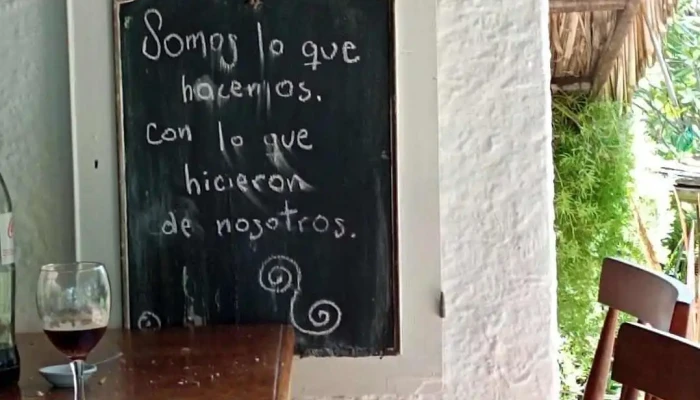 Somos lo que
hacemos.
con lo que
hicieron
de nosotros.